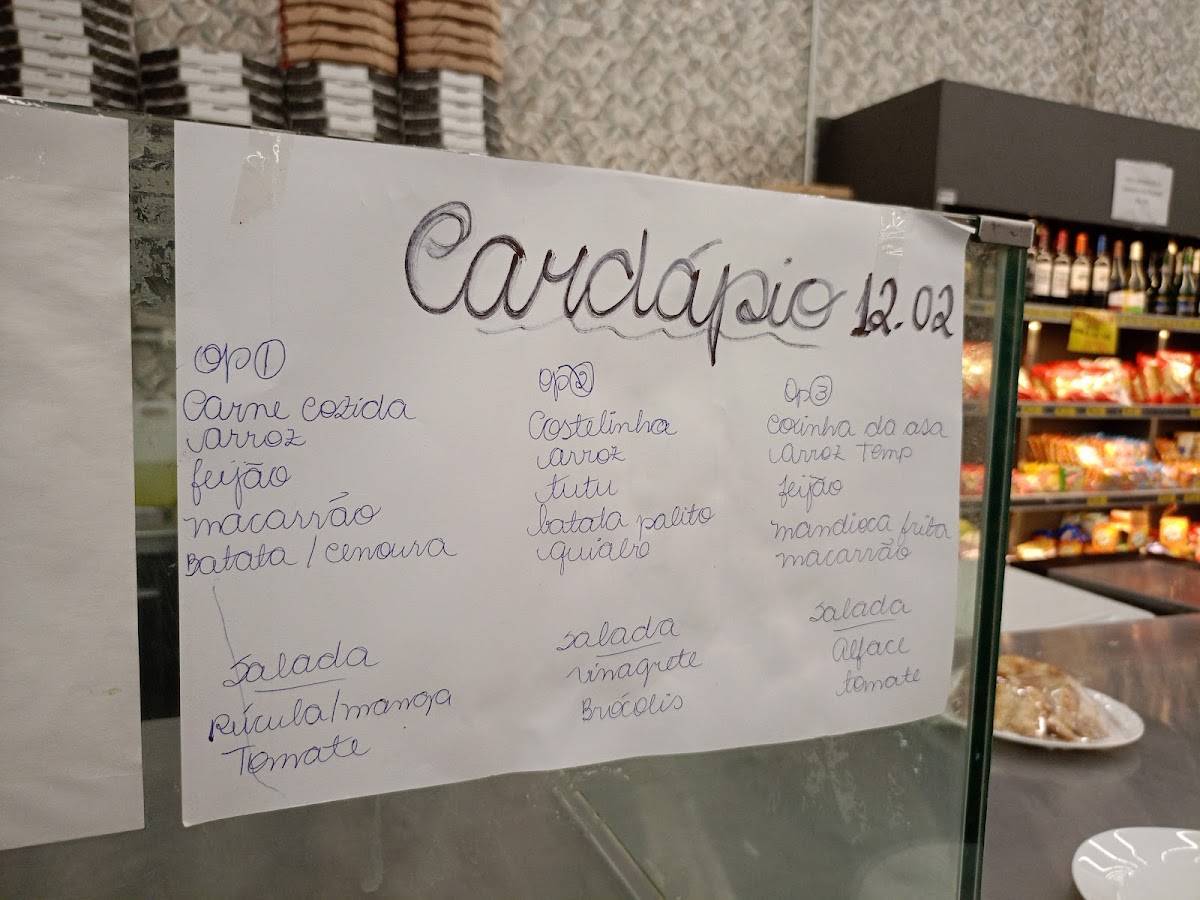 Cardápio 12.02
Op 1
Carne cozida
arroz
feijão
macarrão
Batata / cenoura
Salada
Rúcula/manga
Tomate
Op 2
Costelinha
arroz
tutu
batata palito
quiabo
Salada
vinagrete
Brócolis
Op 3
Coxinha da asa
arroz Temp
feijão
mandioca frita
macarrão
Salada
Alface
tomate